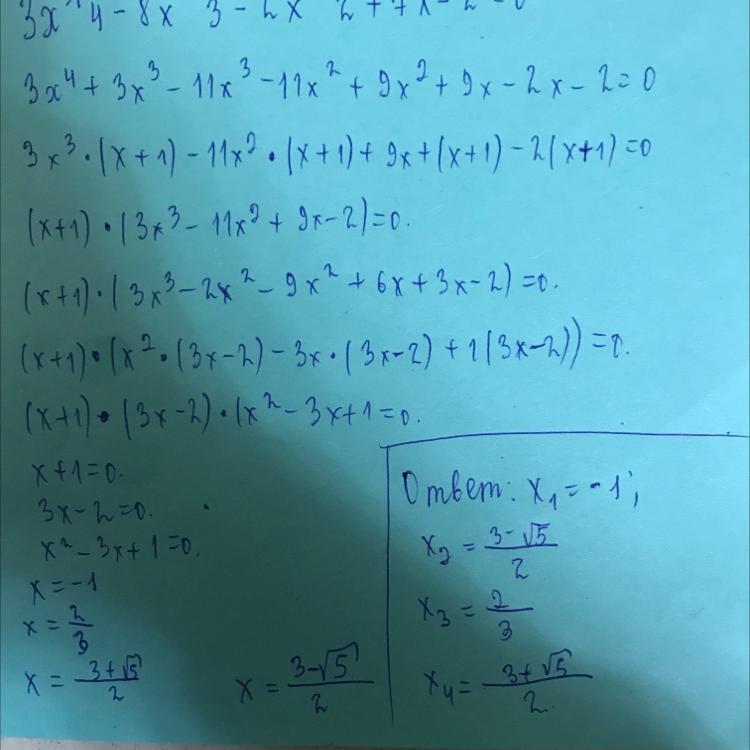 3x^4 - 8x^3 - 2x^2 + 7x - 2 = 0
3x⁴ + 3x³ - 11x³ - 11x² + 9x² + 9x - 2x - 2 = 0
3x³ · (x + 1) - 11x² · (x + 1) + 9x + (x + 1) - 2(x + 1) = 0
(x+1) · (3x³ - 11x² + 9x - 2) = 0.
(x+1) · (3x³ - 2x² - 9x² + 6x + 3x - 2) = 0.
(x+1) · (x² · (3x-2) - 3x · (3x-2) + 1(3x-2)) = 0.
(x+1) · (3x-2) · (x² - 3x + 1 = 0.
x + 1 = 0.
3x - 2 = 0.
x² - 3x + 1 = 0.
x = -1
x = 2/3
x = (3+√5)/2
x = (3-√5)/2
Ответ: x₁ = -1;
x₂ = (3-√5)/2
x₃ = 2/3
x₄ = (3+√5)/2.